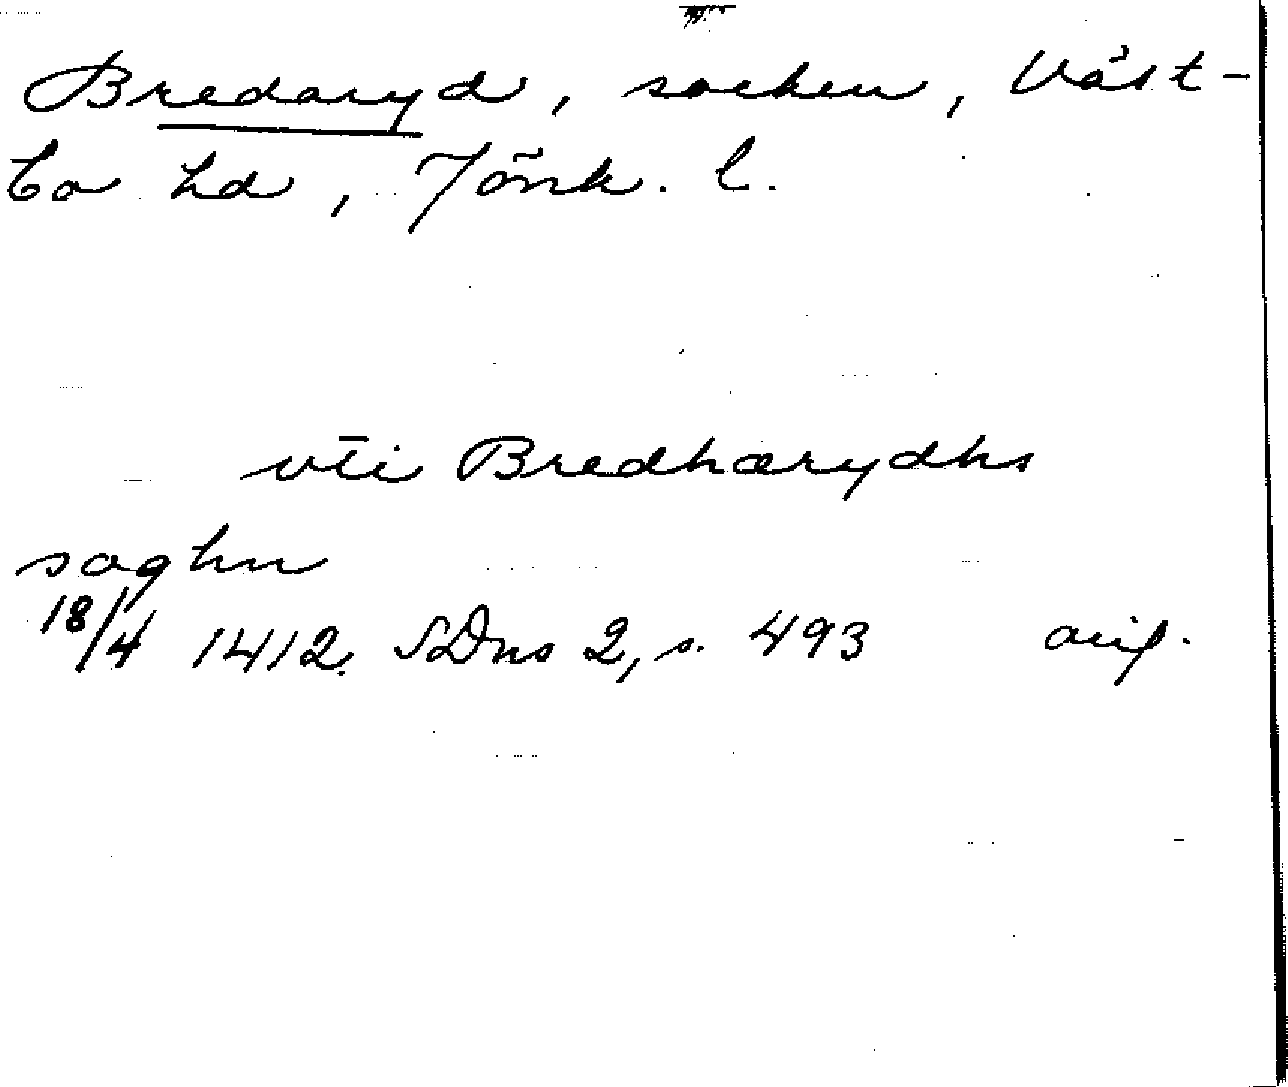 Bredaryd, socken, Väst-
bo hd, Jönk. l.
vti Bredhærydhs
soghn
18/4 1412. SDns 2, s. 493 orig.